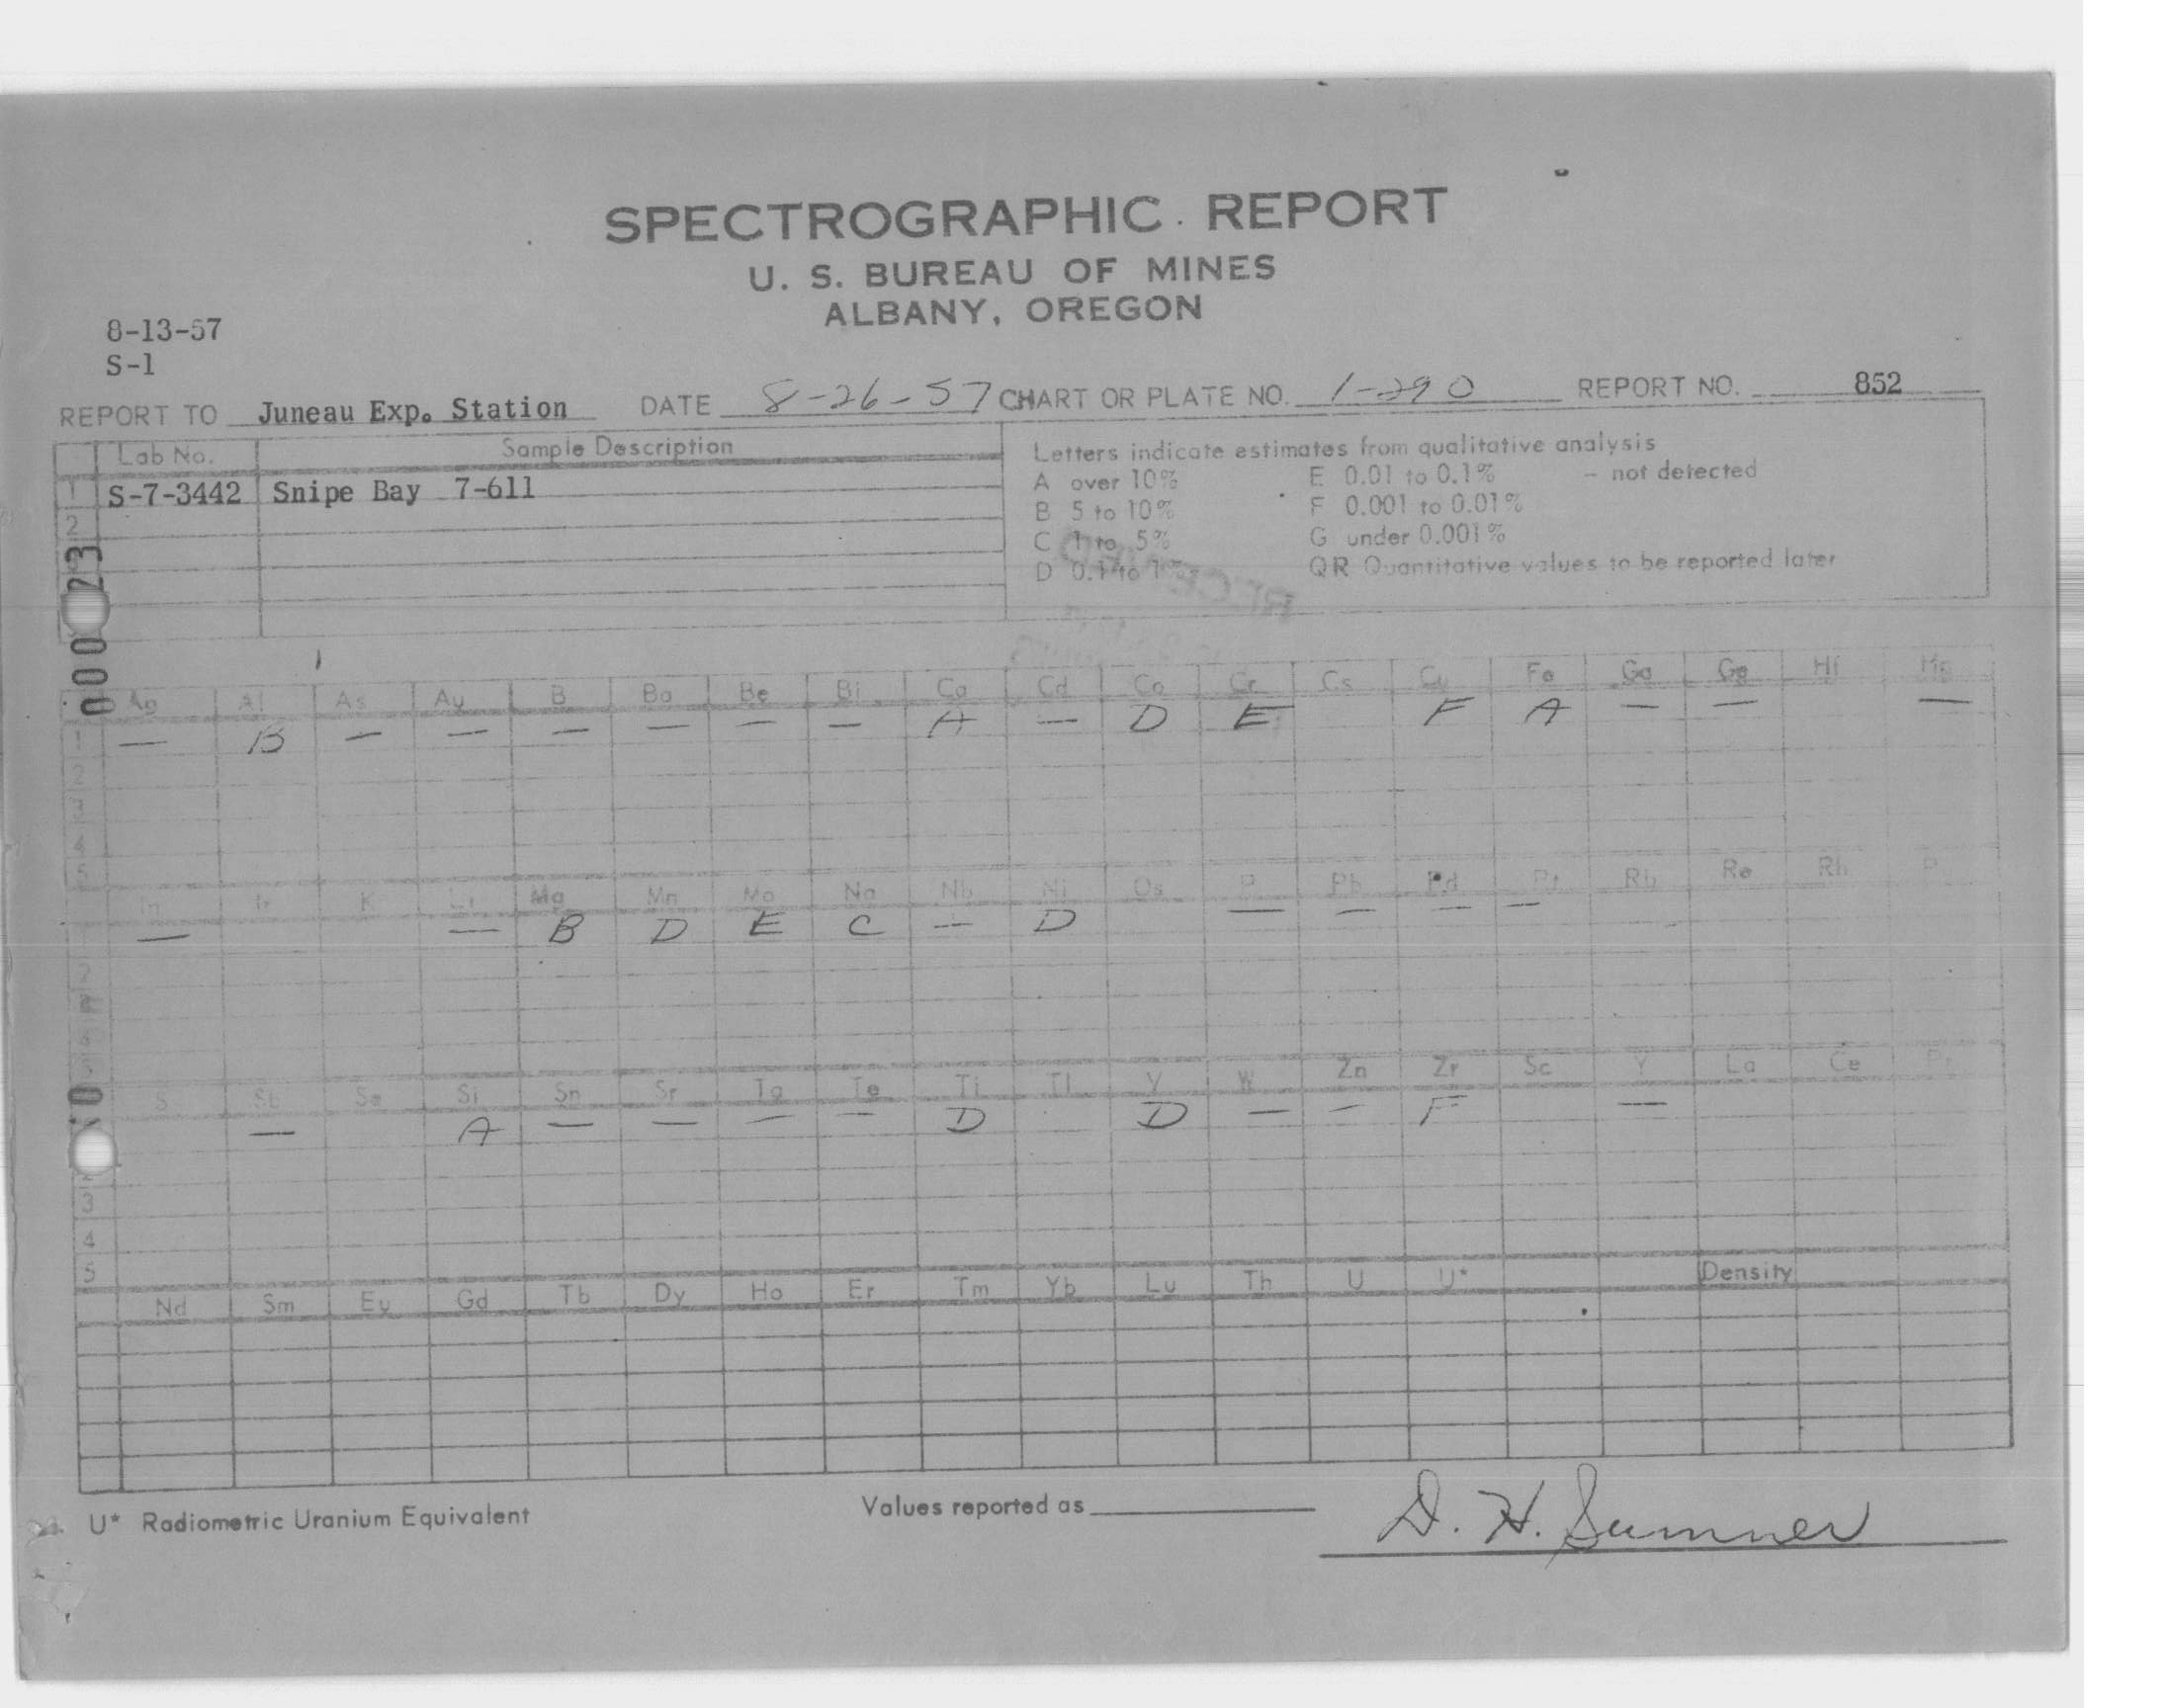 SPECTROGRAPHIC REPORT
U. S. BUREAU OF MINES
ALBANY, OREGON
8-13-57
S-1
REPORT TO Juneau Exp. Station DATE 8-26-57 CHART OR PLATE NO. 1-290 REPORT NO. 852
Lab No. Sample Description
1 S-7-3442 Snipe Bay 7-611
2
Letters indicate estimates from qualitative analysis
A over 10% E 0.01 to 0.1% - not detected
B 5 to 10% F 0.001 to 0.01%
C 1 to 5% G under 0.001%
D 0.1 to 1% QR Quantitative values to be reported later
Ag Al As Au B Ba Be Bi Ca Cd Co Cr Cs Cu Fe Ga Ge Hf Hg
1 — B — — — — — — A — D E F A — — —
2
3
4
5
In Ir K Li Mg Mn Mo Na Nb Ni Os P Pb Pd Pt Rb Re Rh
1 — — B D E C — D — — — —
2
S Sb Se Si Sn Sr Ta Te Ti Tl V W Zn Zr Sc Y La Ce Pr
— A — — — — D D — — F —
3
4
5
Nd Sm Eu Gd Tb Dy Ho Er Tm Yb Lu Th U U* Density
U* Radiometric Uranium Equivalent
Values reported as
D. H. Sumner